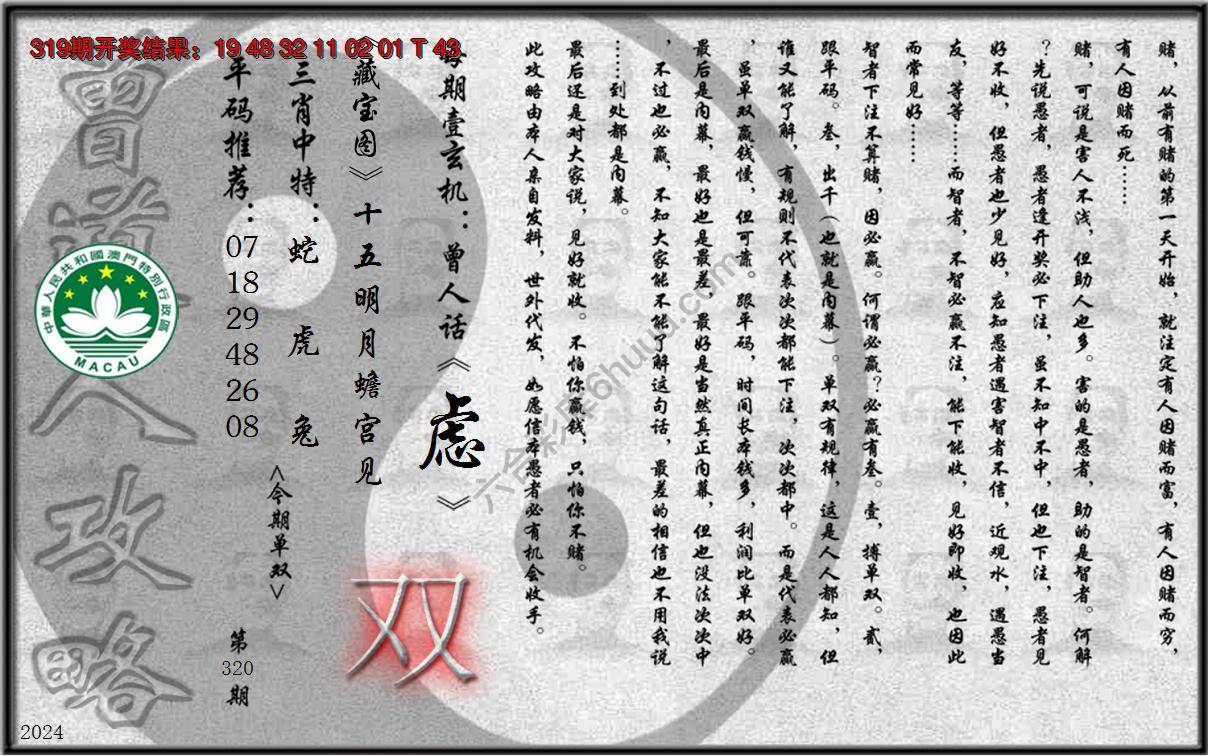 319期开奖结果：19 48 32 11 02 01 T 43
赌，从前有赌的第一天开始，就注定有人因赌而富，有人因赌而穷，
有人因赌而死……
赌，可说是害人不浅，但助人也多。害的是愚者，助的是智者。何解
？先说愚者，愚者逢开奖必下注，虽不知中不中，但也下注，愚者见
好不收，但愚者也少见好，应知愚者遇害智者不信，近观水，遇愚当
友，等等……而智者，不智必赢不注，能下能收，见好即收，也因此
而常见好……
智者下注不算赌，因必赢。何谓必赢？必赢有叁。壹，搏单双。贰，
跟平码。叁，出千（也就是内幕）。单双有规律，这是人人都知，但
谁又能了解，有规则不代表次次都能下注，次次都中。而是代表必赢
，虽单双赢钱慢，但可靠。跟平码，时间长本钱多，利润比单双好。
最后是内幕，最好也是最差，最好是当然真正内幕，但也没法次次中
，不过也必赢，不知大家能不能了解这句话，最差的相信也不用我说
……到处都是内幕。
最后还是对大家说，见好就收。不怕你赢钱，只怕你不赌。
此攻略由本人亲自发料，世外代发，如愿信本愚者必有机会收手。
每期壹玄机：曾人话《虑》
《藏宝图》十五明月蟾宫见
三肖中特：蛇 虎 兔
<今期单双>
双
平码推荐：
07
18
29
48
26
08
第
320
期
曾道人攻略
中華人民共和國澳門特別行政區
MACAU
2024